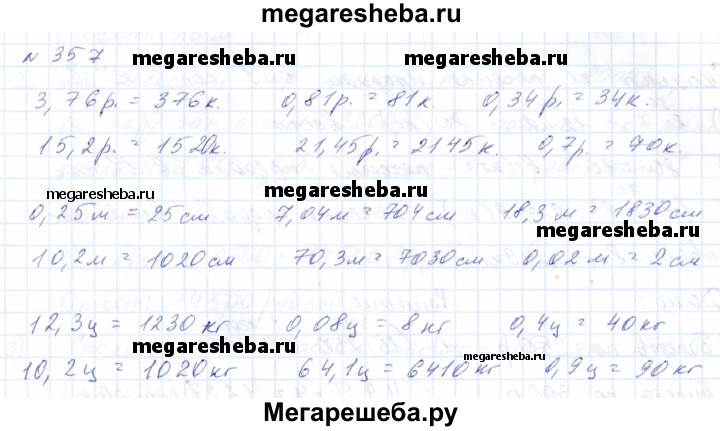 megaresheba.ru
№ 357
megaresheba.ru megaresheba.ru
3,76р. = 376к. 0,81р. = 81к. 0,34р. = 34к.
15,2р. = 1520к. 21,45р. = 2145к. 0,7р. = 70к.
megaresheba.ru megaresheba.ru
0,25м = 25см 7,04м = 704см 18,3м = 1830см
megaresheba.ru
10,2м = 1020см 70,3м = 7030см 0,02м = 2см
12,3ц = 1230кг 0,08ц = 8кг 0,4ц = 40кг
megaresheba.ru megaresheba.ru
10,2ц = 1020кг 64,1ц = 6410кг 0,9ц = 90кг
Мегарешеба.ру